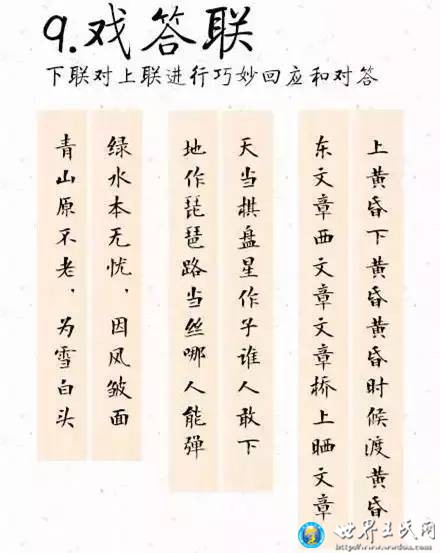 9.戏答联
下联对上联进行巧妙回应和对答
上黄昏下黄昏黄昏时候渡黄昏
东文章西文章文章桥上晒文章
天当棋盘星作子谁人敢下
地作琵琶路当丝哪人能弹
绿水本无忧，因风皱面
青山原不老，为雪白头
世界王氏网